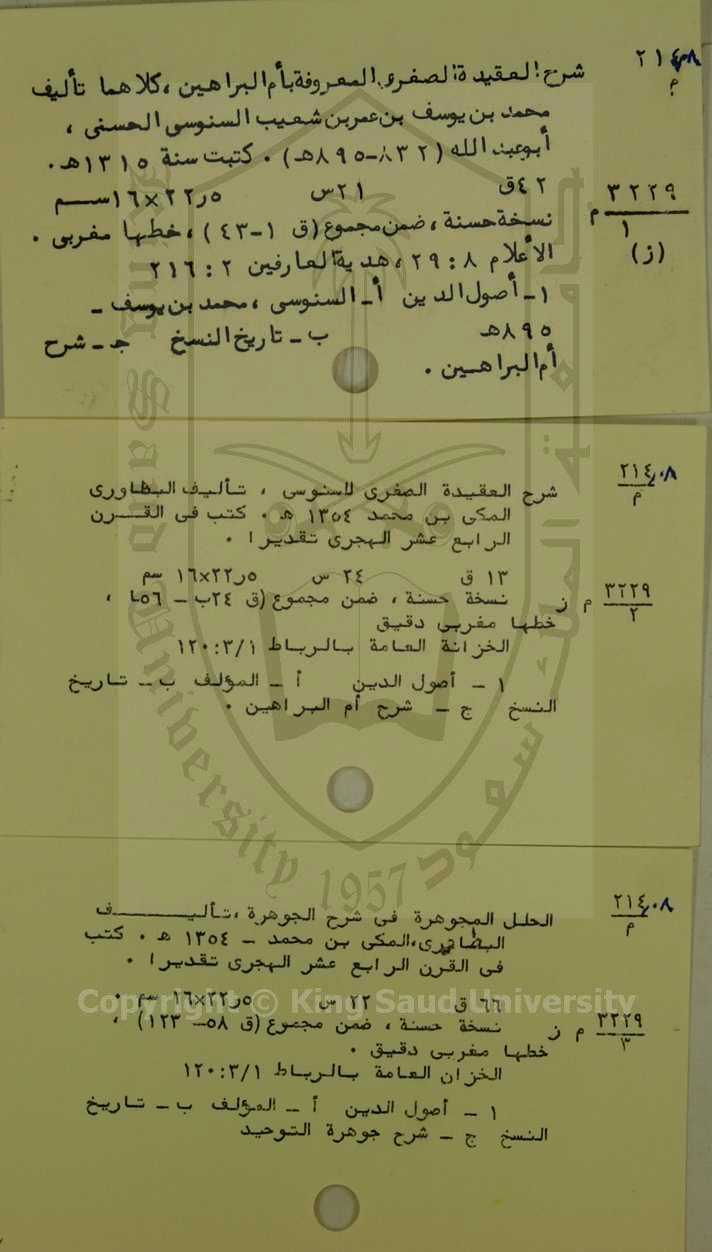 ٢١٤٫٠٨
م
شرح العقيدة الصغرى المعروفة بأم البراهين ، كلاهما تأليف
محمد بن يوسف بن عمر بن شعيب السنوسي الحسني ،
أبو عبد الله (٨٣٢-٨٩٥هـ) . كتبت سنة ١٣١٥هـ .
٤٢ق ٢١س ٥ر٢٢×١٦ســم
نسخة حسنة ، ضمن مجموع (ق ١-٤٣) ، خطها مغربي .
٣٢٢٩ م
١
(ز)
الأعلام ٨ : ٢٩ ، هدية العارفين ٢ : ٢١٦
١- أصول الدين أ - السنوسي ، محمد بن يوسف -
٨٩٥هـ ب - تاريخ النسخ جـ - شرح
أم البراهين .
٢١٤٫٠٨
م
شرح العقيدة الصغرى للسنوسى ، تأليف البطاورى
المكى بن محمد ١٣٥٤ هـ . كتب فى القـــرن
الرابع عشر الهجرى تقديرا .
١٣ ق ٢٤ س ٥ر٢٢×١٦ سم
٣٢٢٩ م ز
٢
نسخة حسنة ، ضمن مجموع (ق ٢٤ب - ٥٦أ ،
خطها مغربى دقيق
الخزانة العامة بالرباط ١٢٠:٣/١
١ - أصول الدين أ - المؤلف ب - تاريخ
النسخ ج - شرح أم البراهين .
٢١٤٫٠٨
م
الحلل المجوهرة فى شرح الجوهرة ،تأليــــــف
البطاورى،المكى بن محمد - ١٣٥٤ هـ . كتب
فى القرن الرابع عشر الهجرى تقديرا .
٦٦ ق ٢٢ س ٥ر٢٢×١٦ سم .
٣٢٢٩ م ز
٣
نسخة حسنة ، ضمن مجموع (ق ٥٨- ١٢٣) ،
خطها مغربى دقيق .
الخزان العامة بالرباط ١٢٠:٣/١
١ - أصول الدين أ - المؤلف ب - تاريخ
النسخ ج - شرح جوهرة التوحيد
جامعة الملك سعود
King Saud University
1957
Copyright © King Saud University